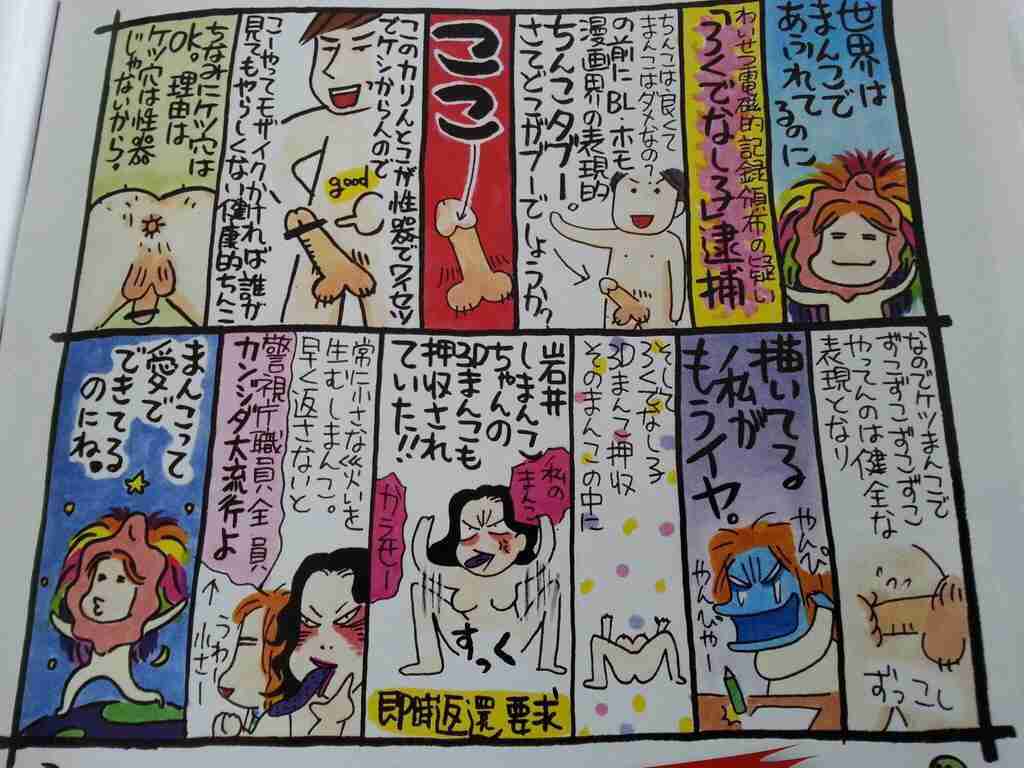 世界は
まんこで
あふれて
るのに
わいせつ電磁的記録頒布の疑い
「ろくでなし子」逮捕
ちんこは良くて
まんこはダメなの?
の前にBL・ホモ
漫画界の表現的
ちんこタブー。
さてどこがブーでしょうか?
ここ
このカリんとこが性器でワイセツ
でケシからんので
good
こーやってモザイクかければ誰が
見てもやらしくない健康的ちんこ
ちなみにケツ穴は
OK。理由は
ケツ穴は性器
じゃないから?
なのでケツまんこで
ずっこずっこずこずこ
やってんのは健全な
表現となり
ずっ
こし
描いてる
私が
もうイヤ。
やんぴ
やんぴやー
そして
ろくでなし子
3Dまんこ押収
そのまんこの中に
岩井
しまんこ
ちゃんの
3Dまんこも
押収され
ていた!!
私の
まんこ
かえせー
すっく
即時返還要求
常に小さな災いを
生むしまんこ。
早く返さないと
警視庁職員全員
カンジダ大流行よ
うわー
小さー
まんこって
愛で
できてる
のにね。